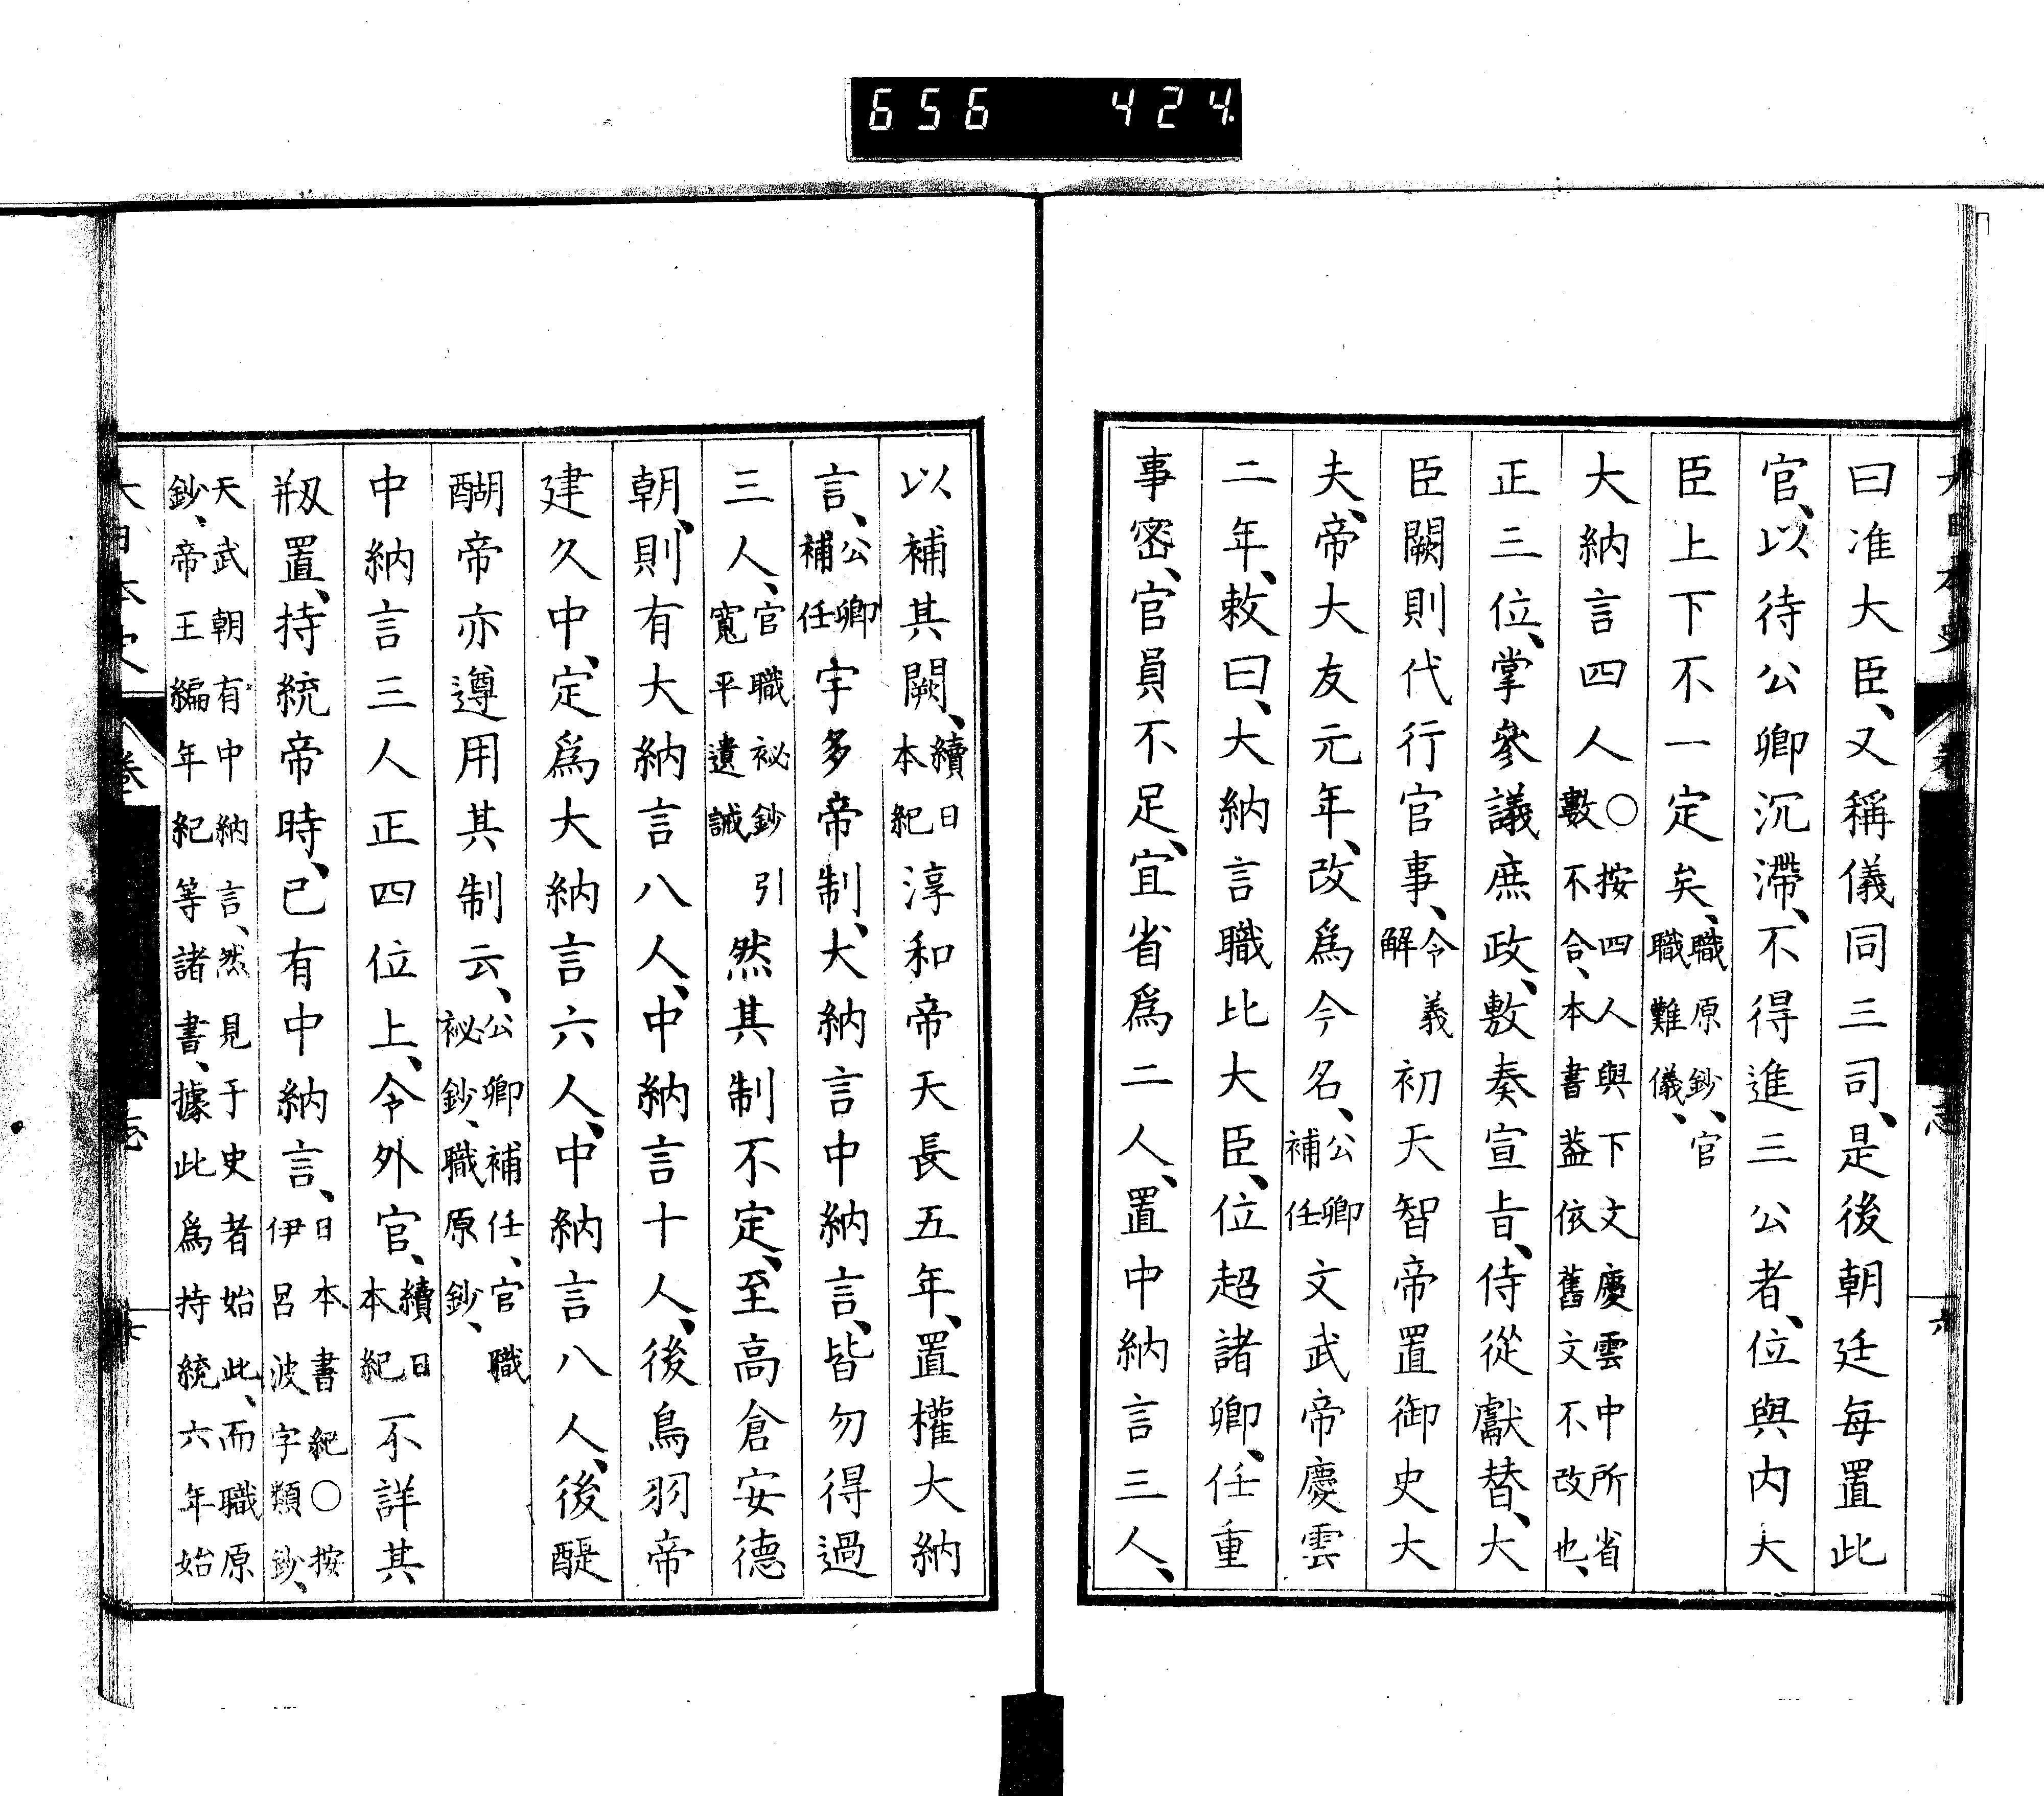 656 424
曰准大臣、又稱儀同三司、是後朝廷每置此
官、以待公卿沉滯、不得進三公者、位與内大
臣上下不一定矣、職原鈔、官職難儀、
大納言四人○按四人與下文慶雲中所省數不合、本書蓋依舊文不改也、
正三位、掌參議庶政、敷奏宣旨、侍從獻替、大
臣闕則代行官事、令義解初天智帝置御史大
夫、帝大友元年、改爲今名、公卿補任文武帝慶雲
二年、敕曰、大納言職比大臣、位超諸卿、任重
事密、官員不足、宜省爲二人、置中納言三人、
以補其闕、續日本紀淳和帝天長五年、置權大納
言、公卿補任宇多帝制、大納言中納言、皆勿得過
三人、官職祕鈔引寬平遺誡然其制不定、至高倉安德
朝、則有大納言八人、中納言十人、後鳥羽帝
建久中、定爲大納言六人、中納言八人、後醍
醐帝亦遵用其制云、公卿補任、官職祕鈔、職原鈔、
中納言三人正四位上、令外官、續日本紀不詳其
剏置、持統帝時、已有中納言、日本書紀○按伊呂波字類鈔、
天武朝有中納言、然見于史者始此、而職原鈔、帝王編年紀等諸書、據此爲持統六年始
大日本史 卷 志